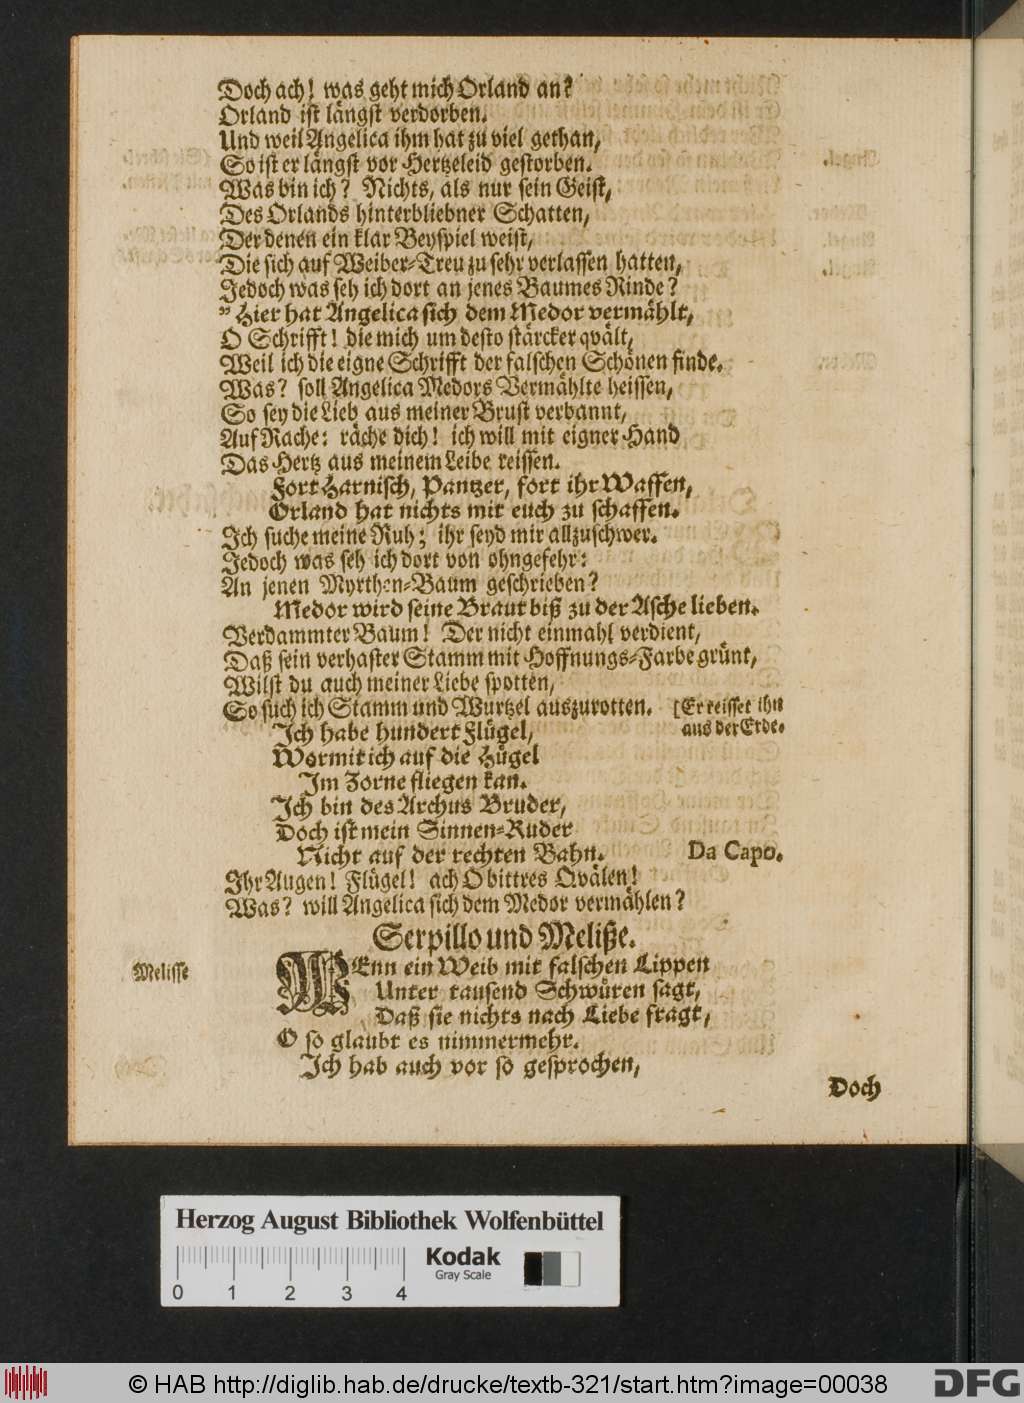 Doch ach! was geht mich Orland an?
Orland ist längst verdorben.
Und weil Angelica ihm hat zu viel gethan,
So ist er längst vor Hertzeleid gestorben.
Was bin ich? Nichts, als nur sein Geist,
Des Orlands hinterbliebner Schatten,
Der denen ein klar Beyspiel weist,
Die sich auf Weiber-Treu zu sehr verlassen hatten,
Jedoch was seh ich dort an jenes Baumes Rinde?
” Hier hat Angelica sich dem Medor vermählt,
O Schrifft! die mich um desto stärcker qvält,
Weil ich die eigne Schrifft der falschen Schönen finde.
Was? soll Angelica Medors Vermählte heissen,
So sey die Lieb aus meiner Brust verbannt,
Auf Rache: räche dich! ich will mit eigner Hand
Das Hertz aus meinem Leibe reissen.
Fort Harnisch, Pantzer, fort ihr Waffen,
Orland hat nichts mit euch zu schaffen.
Ich suche meine Ruh; ihr seyd mir allzuschwer.
Jedoch was seh ich dort von ohngefehr:
An jenen Myrthen-Baum geschrieben?
Medor wird seine Braut biß zu der Asche lieben.
Verdammter Baum! Der nicht einmahl verdient,
Daß sein verhaster Stamm mit Hoffnungs-Farbe grünt,
Wilst du auch meiner Liebe spotten,
So such ich Stamm und Wurtzel auszurotten. [Er reisset ihn
aus der Erde.
Ich habe hundert Flügel,
Wormit ich auf die Hügel
Im Zorne fliegen kan.
Ich bin des Archus Bruder,
Doch ist mein Sinnen-Ruder
Nicht auf der rechten Bahn. Da Capo.
Ihr Augen! Flügel! ach O bittres Qvälen!
Was? will Angelica sich dem Medor vermählen?
Serpillo und Meliße.
Melisse WEnn ein Weib mit falschen Lippen
Unter tausend Schwüren sagt,
Daß sie nichts nach Liebe fragt,
O so glaubt es nimmermehr.
Ich hab auch vor so gesprochen,
Doch
Herzog August Bibliothek Wolfenbüttel
Kodak
Gray Scale
0 1 2 3 4
© HAB http://diglib.hab.de/drucke/textb-321/start.htm?image=00038
DFG